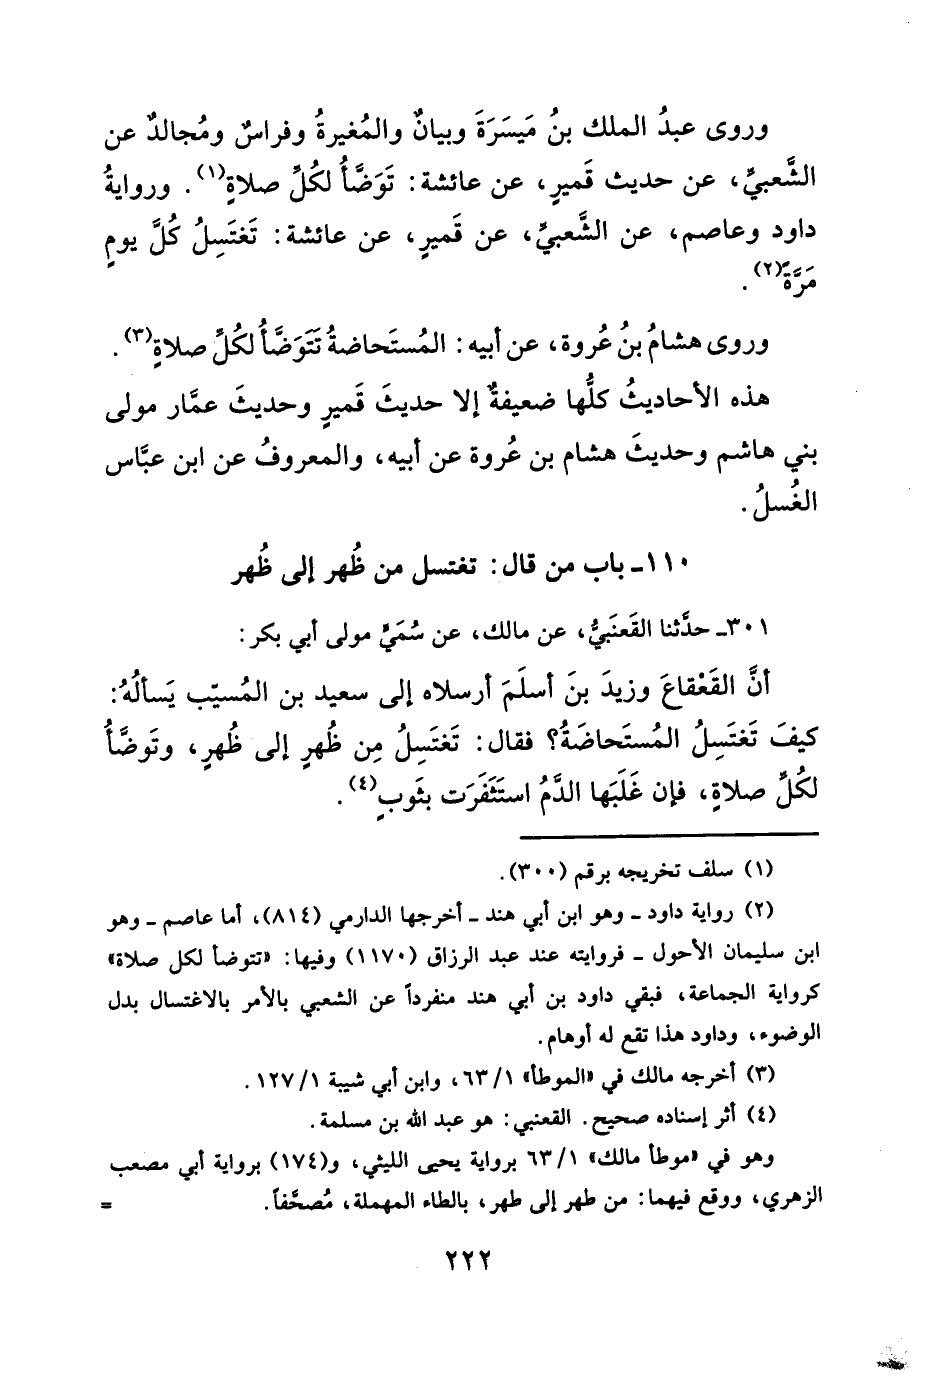 وروى عبدُ الملك بنُ مَيسَرَةَ وبيانٌ والمُغيرةُ وفراسٌ ومُجالدٌ عن
الشَّعبيِّ، عن حديث قَميرٍ، عن عائشة: تَوَضَّأُ لكُلِّ صلاةٍ(١). وروايةُ
داود وعاصم، عن الشَّعبيِّ، عن قَميرٍ، عن عائشة: تَغتَسِلُ كُلَّ يومٍ
مَرَّةً(٢).
وروى هشامُ بنُ عُروة، عن أبيه: المُستَحاضةُ تَتَوَضَّأُ لكُلِّ صلاةٍ(٣).
هذه الأحاديثُ كلُّها ضعيفةٌ إلا حديثَ قَميرٍ وحديثَ عمَّار مولى
بني هاشم وحديثَ هشام بن عُروة عن أبيه، والمعروفُ عن ابن عبَّاس
الغُسلُ.
١١٠ـ باب من قال: تغتسل من ظُهر إلى ظُهر
٣٠١ـ حدَّثنا القَعنَبيُّ، عن مالك، عن سُمَيٍّ مولى أبي بكر:
أنَّ القَعْقاعَ وزيدَ بنَ أسلَمَ أرسلاه إلى سعيد بن المُسيّب يَسألُهُ:
كيفَ تَغتَسِلُ المُستَحاضَةُ؟ فقال: تَغتَسِلُ مِن ظُهرٍ إلى ظُهرٍ، وتَوضَّأُ
لكُلِّ صلاةٍ، فإن غَلَبَها الدَّمُ استَثفَرَت بثَوبٍ(٤).
(١) سلف تخريجه برقم (٣٠٠).
(٢) رواية داود ـ وهو ابن أبي هند ـ أخرجها الدارمي (٨١٤)، أما عاصم ـ وهو
ابن سليمان الأحول ـ فروايته عند عبد الرزاق (١١٧٠) وفيها: «تتوضأ لكل صلاة»
كرواية الجماعة، فبقي داود بن أبي هند منفرداً عن الشعبي بالأمر بالاغتسال بدل
الوضوء، وداود هذا تقع له أوهام.
(٣) أخرجه مالك في «الموطأ» ١/ ٦٣، وابن أبي شيبة ١/ ١٢٧.
(٤) أثر إسناده صحيح. القعنبي: هو عبد الله بن مسلمة.
وهو في «موطأ مالك» ١/ ٦٣ برواية يحيى الليثي، و(١٧٤) برواية أبي مصعب
الزهري، ووقع فيهما: من طهر إلى طهر، بالطاء المهملة، مُصحَّفاً. =
٢٢٢